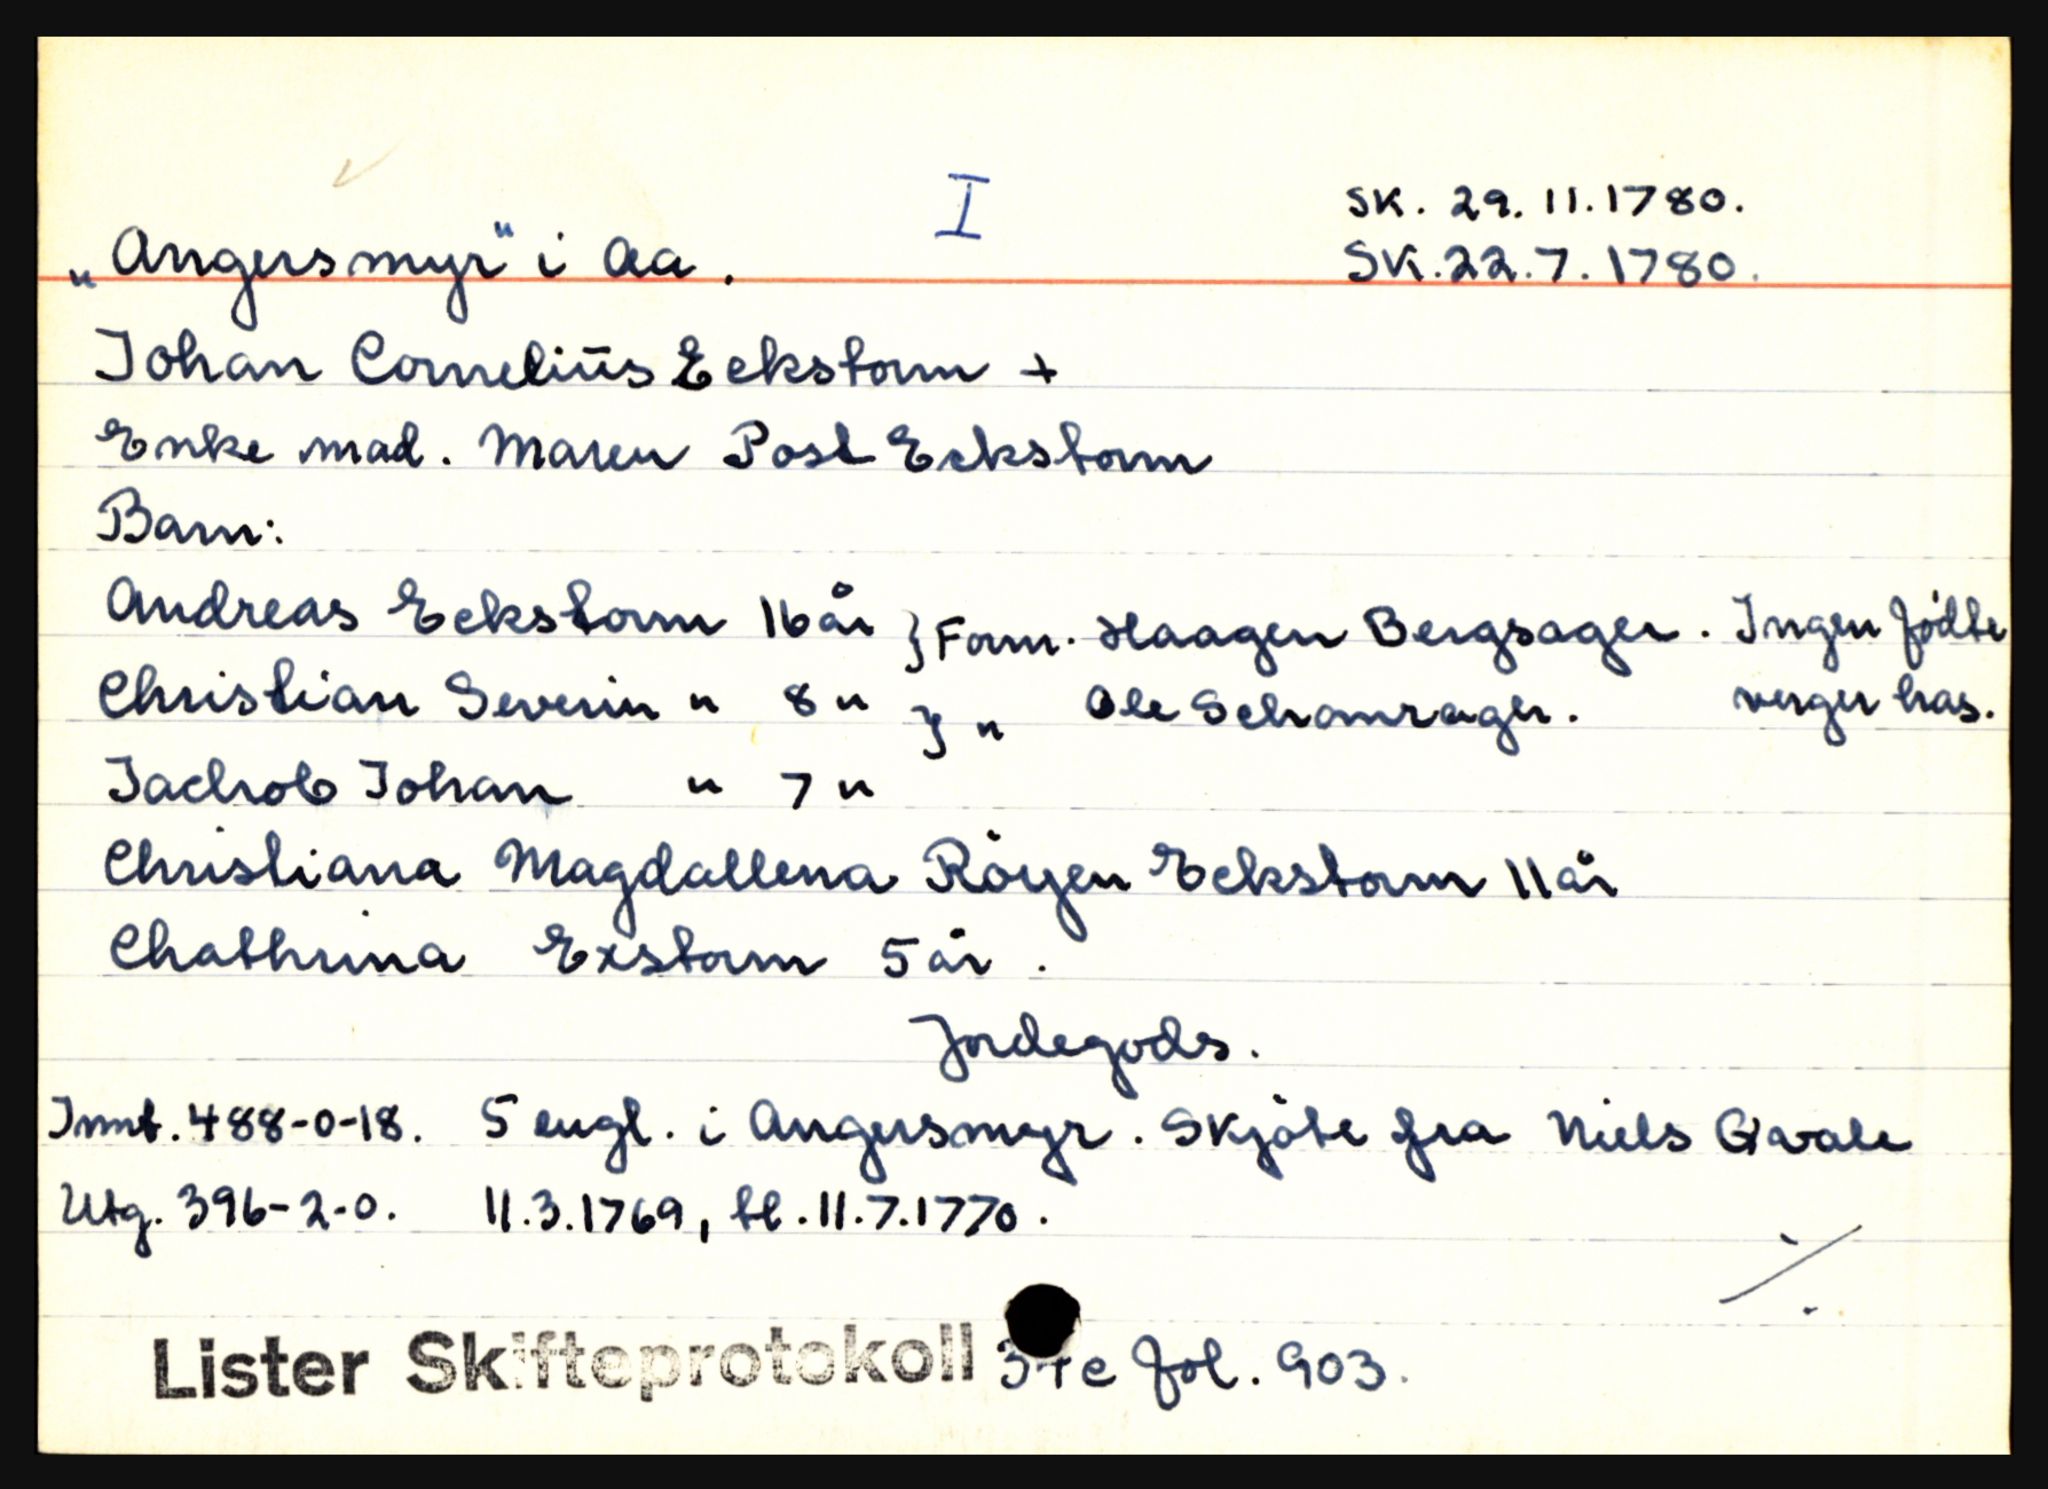 I
SK. 29. 11. 1780.
„Angersmyr" i Aa.
SK. 22. 7. 1780.
Johan Corneliūs Eckstorm +
Enke mad. Maren Post Eckstorm
Barn:
Andreas Eckstorm 16 år } Form. Haagen Bergsager. Ingen födte
Christian Severin " 8 " } " Ole Schomrager. verger has.
Jachob Johan " 7 "
Christiana Magdallena Röyen Eckstorm 11 år
Chathrina Exstorm 5 år.
Jordegods.
Innt. 488-0-18. 5 engl. i Angersmyr. Skjöte fra Niels Qvale
Utg. 396-2-0. 11.3.1769, tl. 11.7.1770.
./.
Lister Skifteprotokoll 34c fol. 903.